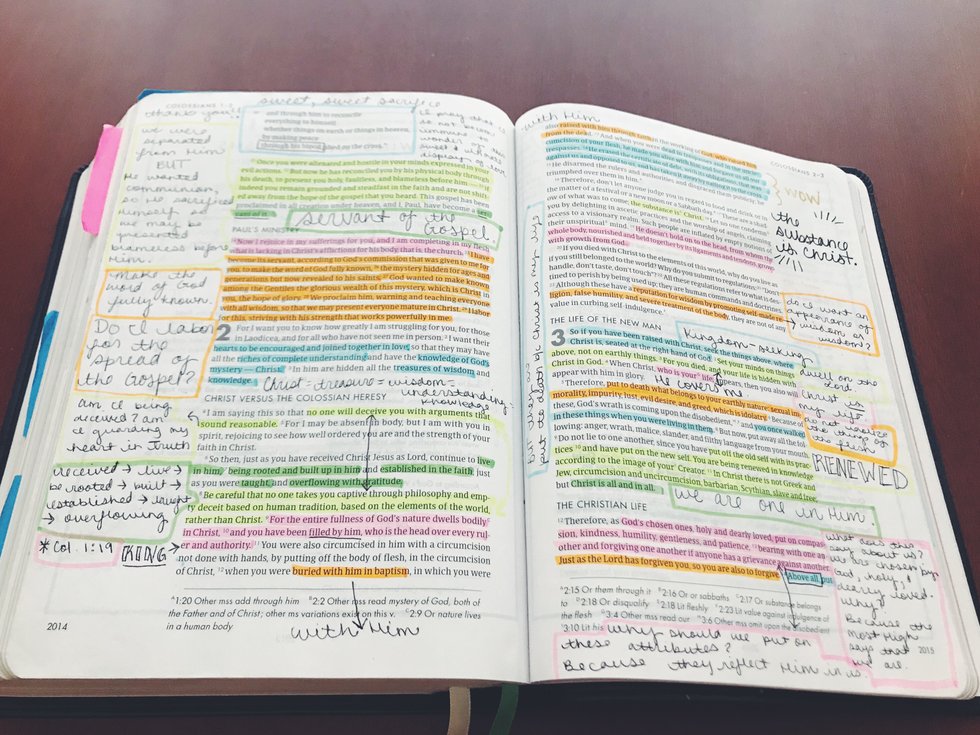 COLOSSIANS 1-2
sweet, sweet sacrifice
thank you!!
we were
separated
from Him
BUT
He wanted
communion,
so He sacrificed
Himself so
we may be
presented
blameless before
Him.
make the
word of God
fully known.
Do I labor
for the
spread of
the Gospel?
am I being
deceived? am
I guarding my
heart in Truth
received → live →
be rooted → built →
established → taught
→ overflowing
* Col. 1:19
KING →
and through him to reconcile
everything to himself,
whether things on earth or things in heaven,
by making peace
through his blood, shed on the cross.
21 Once you were alienated and hostile in your minds expressed in your
evil actions. 22 But now he has reconciled you by his physical body through
his death, to present you holy, faultless, and blameless before him — 23 if
indeed you remain grounded and steadfast in the faith and are not shift-
ed away from the hope of the gospel that you heard. This gospel has been
proclaimed in all creation under heaven, and I, Paul, have become a ser-
vant of it.
servant of the
Gospel.
PAUL'S MINISTRY
24 Now I rejoice in my sufferings for you, and I am completing in my flesh
what is lacking in Christ's afflictions for his body, that is, the church. 25 I have
become its servant, according to God's commission that was given to me for
you, to make the word of God fully known, 26 the mystery hidden for ages and
generations but now revealed to his saints. 27 God wanted to make known
among the Gentiles the glorious wealth of this mystery, which is Christ in
you, the hope of glory. 28 We proclaim him, warning and teaching everyone
with all wisdom, so that we may present everyone mature in Christ. 29 I labor
for this, striving with his strength that works powerfully in me.
2 For I want you to know how greatly I am struggling for you, for those
in Laodicea, and for all who have not seen me in person. 2 I want their
hearts to be encouraged and joined together in love, so that they may have
all the riches of complete understanding and have the knowledge of God's
mystery — Christ. 3 In him are hidden all the treasures of wisdom and
knowledge.
Christ = treasure = wisdom =
understanding
knowledge
CHRIST VERSUS THE COLOSSIAN HERESY
4 I am saying this so that no one will deceive you with arguments that
sound reasonable. 5 For I may be absent in body, but I am with you in
spirit, rejoicing to see how well ordered you are and the strength of your
faith in Christ.
6 So then, just as you have received Christ Jesus as Lord, continue to live
in him, 7 being rooted and built up in him and established in the faith, just
as you were taught, and overflowing with gratitude.
8 Be careful that no one takes you captive through philosophy and emp-
ty deceit based on human tradition, based on the elements of the world,
rather than Christ. 9 For the entire fullness of God's nature dwells bodily
in Christ, 10 and you have been filled by him, who is the head over every rul-
er and authority. 11 You were also circumcised in him with a circumcision
not done with hands, by putting off the body of flesh, in the circumcision
of Christ, 12 when you were buried with him in baptism, in which you were
1:20 Other mss add through him 2:2 Other mss read mystery of God, both of
the Father and of Christ; other ms variations exist on this v. 2:9 Or nature lives
in a human body
with Him
2014
with Him
COLOSSIANS 2-3
also raised with him through faith in the working of God, who raised him
from the dead. 13 And when you were dead in trespasses and in the uncir-
cumcision of your flesh, he made you alive with him and forgave us all our
trespasses. 14 He erased the certificate of debt, with its obligations, that was
against us and opposed to us, and has taken it away by nailing it to the cross.
15 He disarmed the rulers and authorities and disgraced them publicly; he
triumphed over them in him.
16 Therefore, don't let anyone judge you in regard to food and drink or in
the matter of a festival or a new moon or a Sabbath day. 17 These are a shad-
ow of what was to come; the substance is Christ. 18 Let no one condemn
you by delighting in ascetic practices and the worship of angels, claiming
access to a visionary realm. Such people are inflated by empty notions of
their unspiritual mind. 19 He doesn't hold on to the head, from whom the
whole body, nourished and held together by its ligaments and tendons, grows
with growth from God.
20 If you died with Christ to the elements of this world, why do you live as
if you still belonged to the world? Why do you submit to regulations: 21 "Don't
handle, don't taste, don't touch"? 22 All these regulations refer to what is des-
tined to perish by being used up; they are human commands and doctrines.
23 Although these have a reputation for wisdom by promoting self-made re-
ligion, false humility, and severe treatment of the body, they are not of any
value in curbing self-indulgence.
WOW
the
substance
is Christ.
do I want an
appearance of
wisdom or
wisdom?
THE LIFE OF THE NEW MAN
Kingdom-seeking
3 So if you have been raised with Christ, seek the things above, where
Christ is, seated at the right hand of God. 2 Set your minds on things
above, not on earthly things. 3 For you died, and your life is hidden with
Christ in God. 4 When Christ, who is your life, appears, then you also will
appear with him in glory.
He covers me
5 Therefore, put to death what belongs to your earthly nature: sexual im-
morality, impurity, lust, evil desire, and greed, which is idolatry. 6 Because of
these, God's wrath is coming upon the disobedient, 7 and you once walked
in these things when you were living in them. 8 But now, put away all the fol-
lowing: anger, wrath, malice, slander, and filthy language from your mouth.
9 Do not lie to one another, since you have put off the old self with its prac-
tices 10 and have put on the new self. You are being renewed in knowledge
according to the image of your Creator. 11 In Christ there is not Greek and
Jew, circumcision and uncircumcision, barbarian, Scythian, slave and free;
but Christ is all and in all.
dwell on the
Lord
Christ is
my life
do not idolize
the things of
the flesh
RENEWED
we are one in Him.
THE CHRISTIAN LIFE
12 Therefore, as God's chosen ones, holy and dearly loved, put on compas-
sion, kindness, humility, gentleness, and patience, 13 bearing with one an-
other and forgiving one another if anyone has a grievance against another.
Just as the Lord has forgiven you, so you are also to forgive. 14 Above all, put
what does this
say about us?
we are chosen by
God, holy, &
dearly loved.
why?
Because the
Most High
says that
we are.
2:15 Or them through it 2:16 Or or sabbaths 2:17 Or substance belongs
to 2:18 Or disqualify 2:18 Lit fleshly 2:23 Lit value against indulgence of
the flesh 3:4 Other mss read our 3:6 Other mss omit upon the disobedient
3:10 Lit his
why should we put on
these attributes?
Because they reflect Him in us.
2015